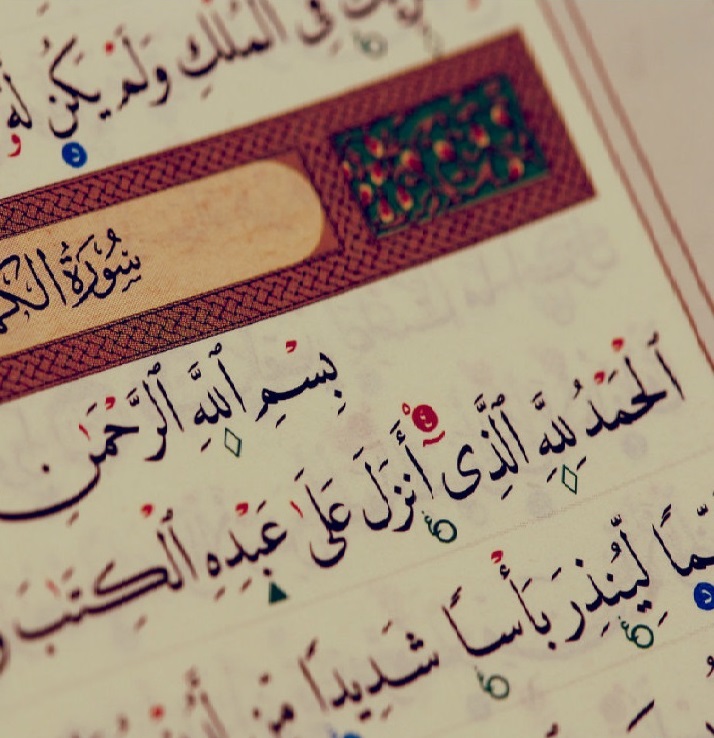 فِى الْمُلْكِ وَلَمْ يَكُن لَّهُ
سُورَةُ
بِسْمِ ٱللَّهِ ٱلرَّحْمَٰنِ
ٱلْحَمْدُ لِلَّهِ ٱلَّذِىٓ أَنزَلَ عَلَىٰ عَبْدِهِ ٱلْكِتَٰبَ
لِّيُنذِرَ بَأْسًا شَدِيدًا مِّن